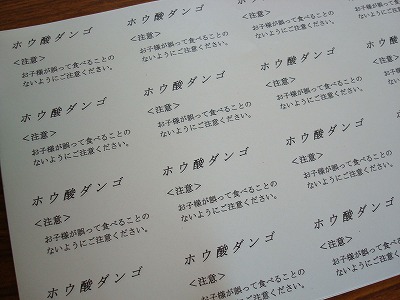 ホウ酸ダンゴ
<注意>
お子様が誤って食べることの
ないようにご注意ください。
ホウ酸ダンゴ
<注意>
お子様が誤って食べることの
ないようにご注意ください。
ホウ酸ダンゴ
<注意>
お子様が誤って食べることの
ないようにご注意ください。
ホウ酸ダンゴ
ホウ酸ダンゴ
<注意>
お子様が誤って食べることの
ないようにご注意ください。
ホウ酸ダンゴ
<注意>
お子様が誤って食べることの
ないようにご注意ください。
ホウ酸ダンゴ
<注意>
お子様が誤って食べることの
ないようにご注意ください。
ホウ酸ダンゴ
<注意>
お子様が誤って食べることの
お子様が誤って食べることの
ないようにご注意ください。
ホウ酸ダンゴ
<注意>
お子様が誤って食べることの
ないようにご注意ください。
ホウ酸ダンゴ
<注意>
お子様が誤って食べることの
ないようにご注意ください。
ホウ酸ダンゴ
<注意>
お子様が誤って食べることの
ないようにご注意ください。